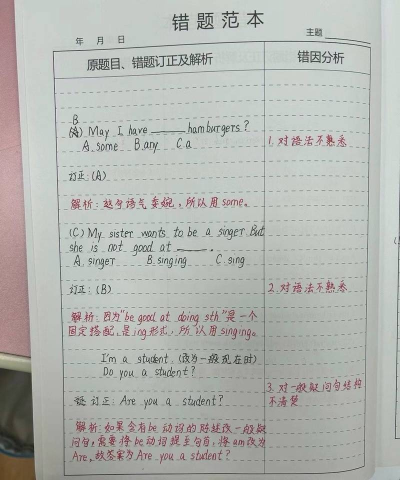 错题范本
年 月 日
主题
原题目、错题订正及解析
错因分析
B
(A) May I have ______ hamburgers?
A. some B. any C a
1. 对语法不熟悉
订正:(A)
解析: 语气委婉,所以用some。
(C) My sister wants to be a singer But
she is not good at ____.
A. singer B. singing C. sing
订正:(B)
2. 对语法不熟悉
解析: 因为"be good at doing sth"是一个
固定搭配,是ing形式,所以用singing。
I'm a student. (改为一般现在时)
Do you a student?
3. 对一般疑问句结构
不清楚
订正: Are you a student?
解析: 如果含有be动词的陈述改一般疑
问句,需要将be动词提至句首,将am改为
Are,故答案为Are you a student?